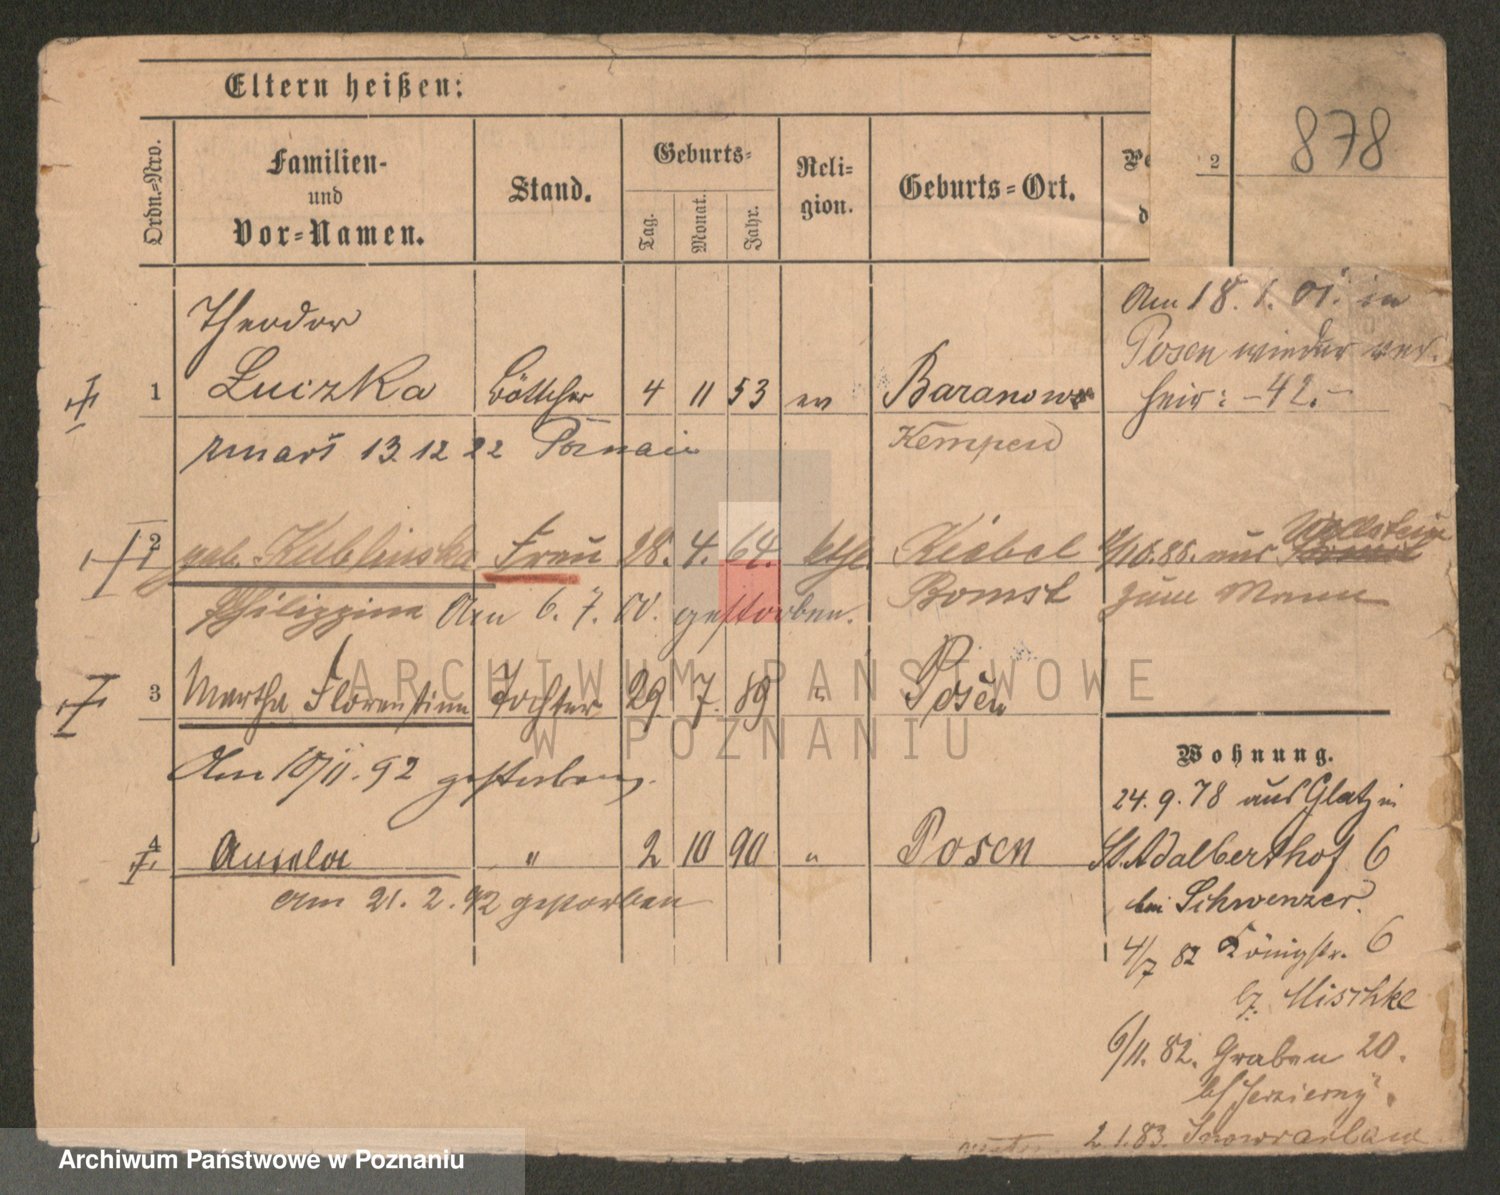 Eltern heißen:
878
Ordn.-Nro.
Familien-
und
Vor-Namen.
Stand.
Geburts-
Tag.
Monat.
Jahr.
Religion.
Geburts-Ort.
2
Theodor
1 Luczka Böttcher 4 11 53 ev Baranow
zmarł 13 12 22 Poznań Kempen
Am 18. 1. 01. in
Posen wieder ver-
heir: - 42. -
2 geb. Kublinska Frau 28. 4. 64. kth Kiebel
Philippine Am 6. 7. 00. gestorben. Bomst
88. aus Wollstein
zum Mann
3 Martha Florentine Tochter 29 7. 89 " Posen
Am 10/11. 92 gestorben.
4 Aurela " 2 10 90 " Posen
Am 21. 2. 92 gestorben
Wohnung.
24. 9. 78 aus Glatz in
St. Adalberthof 6
bei Schwenzer.
4/7 82 Königstr. 6
bz. Mischke
6/11. 82. Graben 20.
2. 1. 83. Inowrazlaw
ARCHIWUM PAŃSTWOWE
W POZNANIU
Archiwum Państwowe w Poznaniu